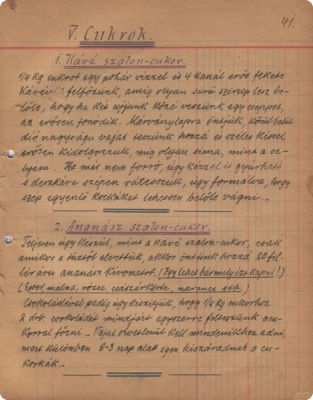 41.
V. Cukrok.
1. Kávé szalon-cukor.
1/4 kg cukrot egy pohár vizzel és 4 kanál erős fekete
kávéval felfőzünk, amig olyan sürü szörup lesz be-
lőle, hogy ha két ujjunk közé veszünk egy cseppet,
az erősen fonódik. Márványlapra öntjük, körülbelül
dió nagyságu vajat teszünk hozzá és széles késsel
erősen kidolgozzuk, mig olyan sima, mint a se-
lyem. Ha már nem forró, ugy kézzel is gyurható
s deszkára szépen rátesszük, ugy formálva, hogy
szép egyenlő kockákat lehessen belőle vágni.
2. Ananász szalon-cukor.
Teljesen ugy készül, mint a kávé szalon-cukor, csak
amikor a tüzről elvettük, akkor öntünk hozzá 20 fil-
lérára ananász kivonatot. (Igy lehet bármely izt kapni!)
(Eper, málna, rózsa, császárkörte, narancs stb.)
Csokoládéval pedig ugy készitjük, hogy 1/4 kg cukorhoz
2 drb. csokoládét mindjárt egyszerre felteszünk a cu-
korral főzni. Vajat okvetlenül kell mindenikhez adni,
mert különben 2-3 nap alatt egészen kiszáradnak a cu-
korkák.